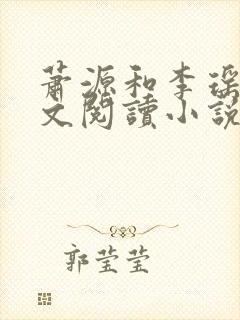 萧源和李瑶
文閱讀小説
郭莹莹